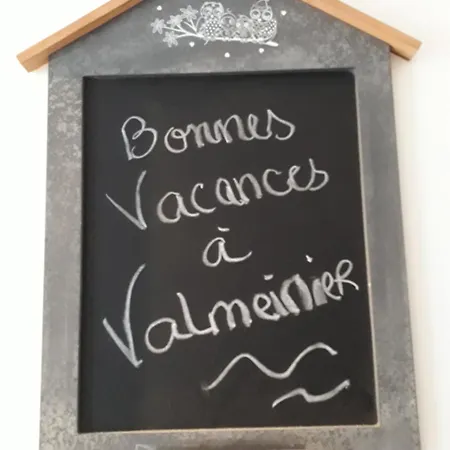 Bonnes
Vacances
à
Valmeinier